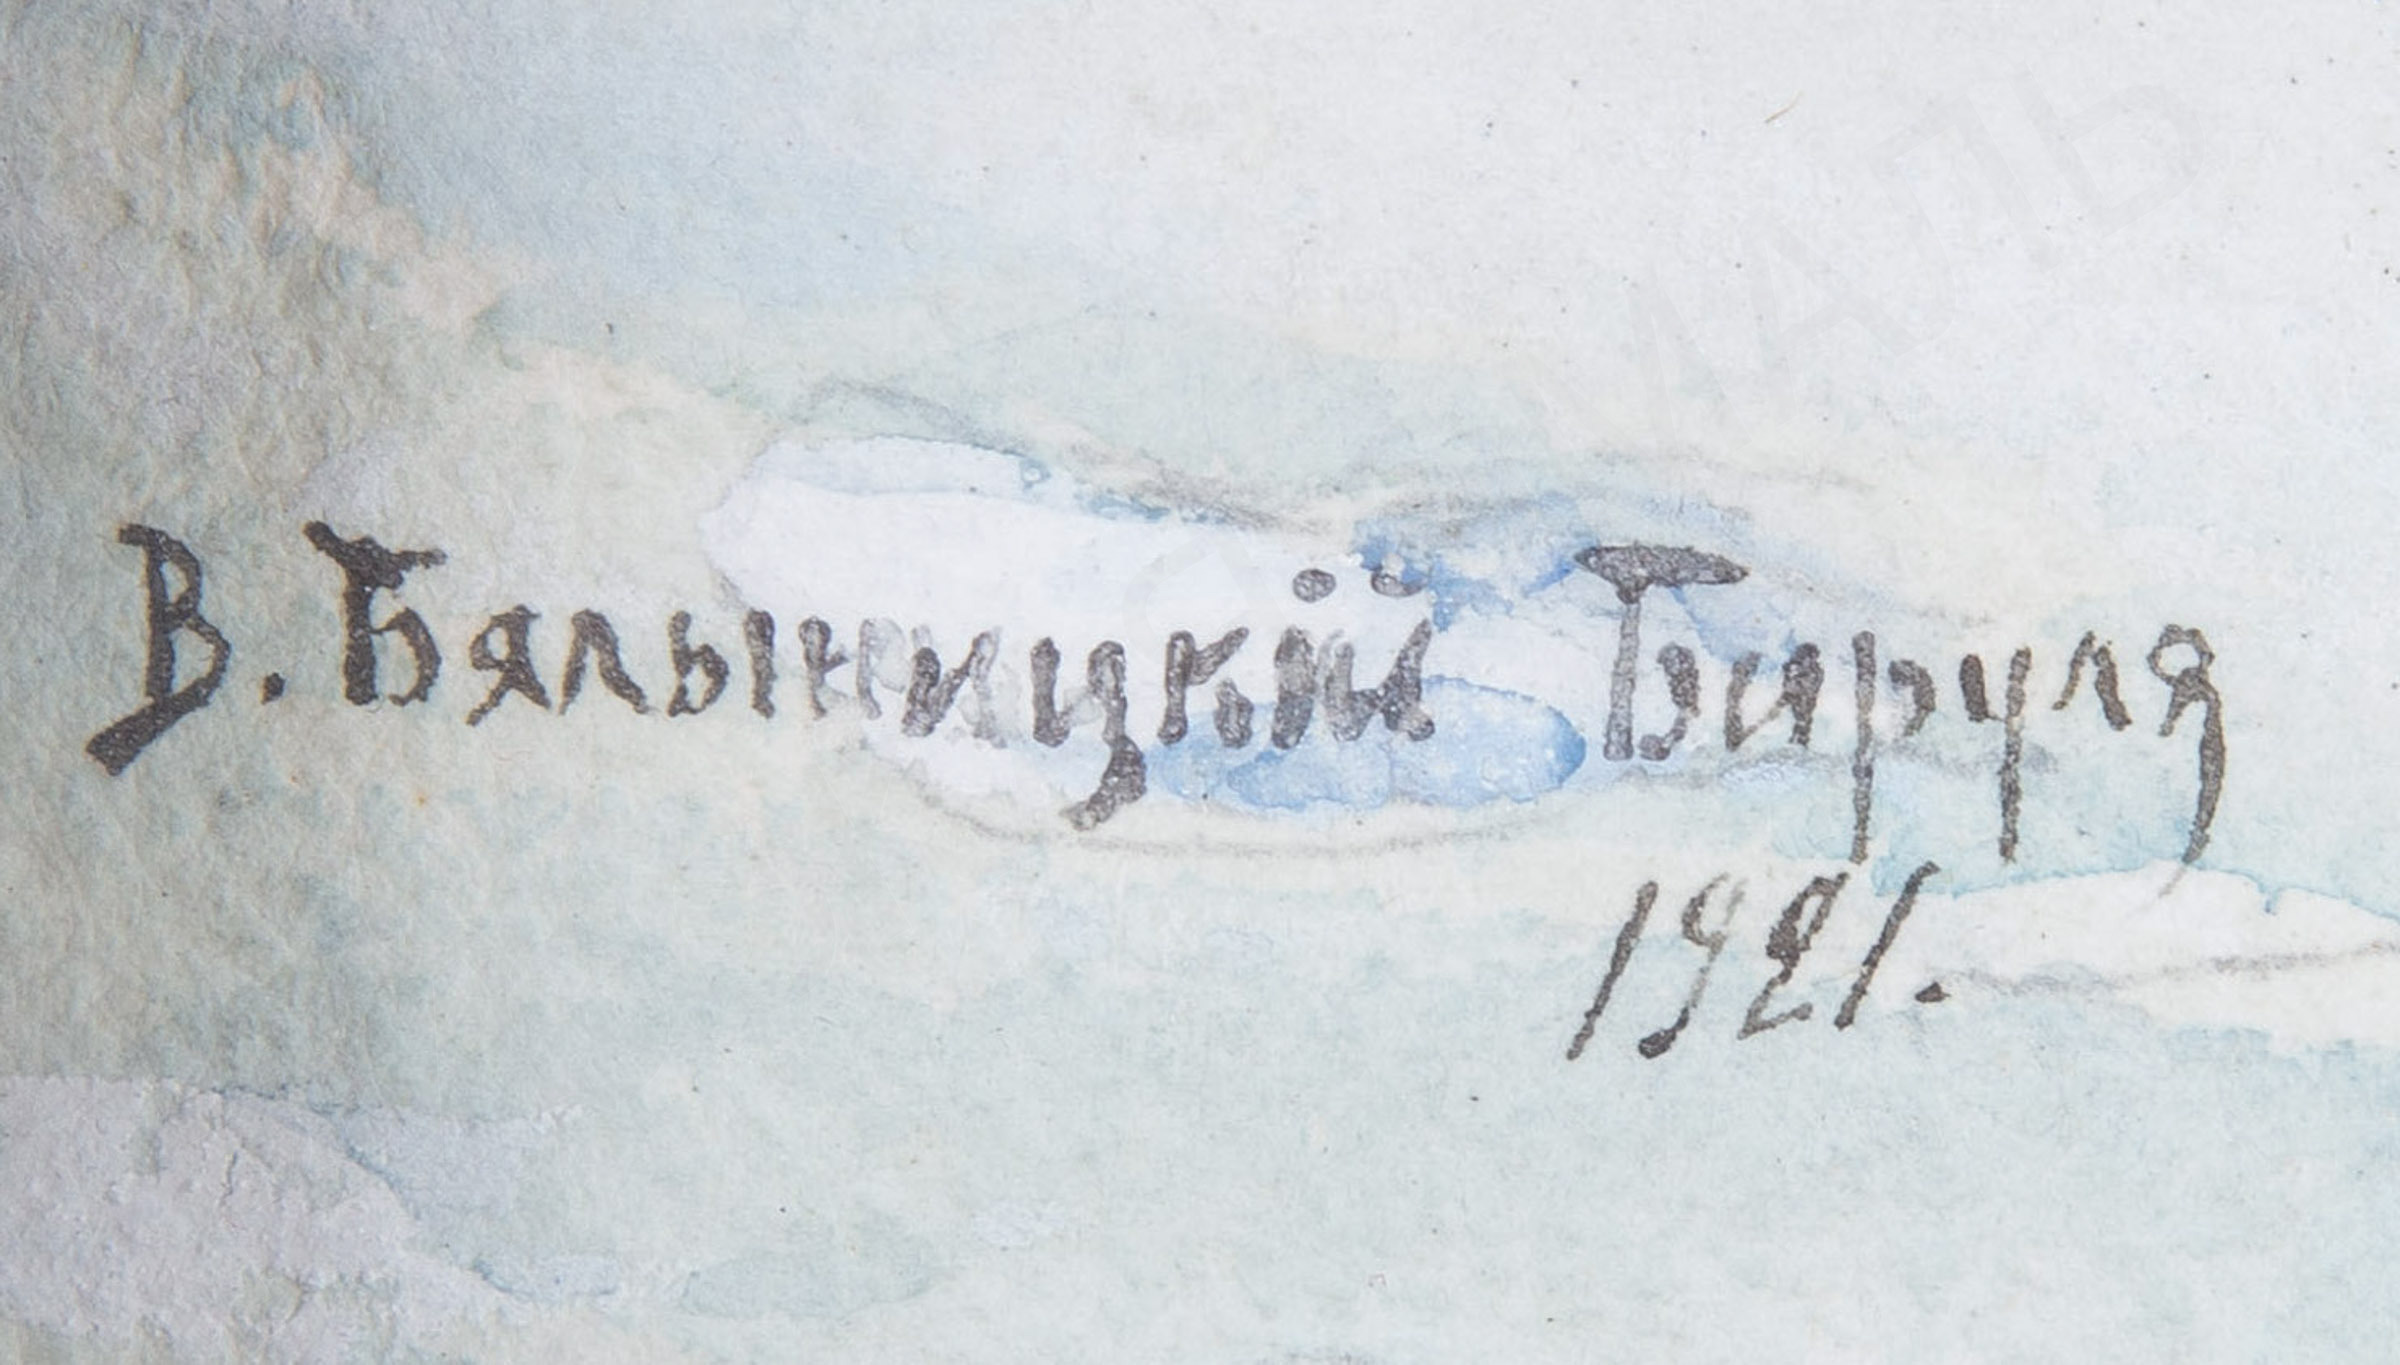 В. Бялыницкiй Бируля
1921.